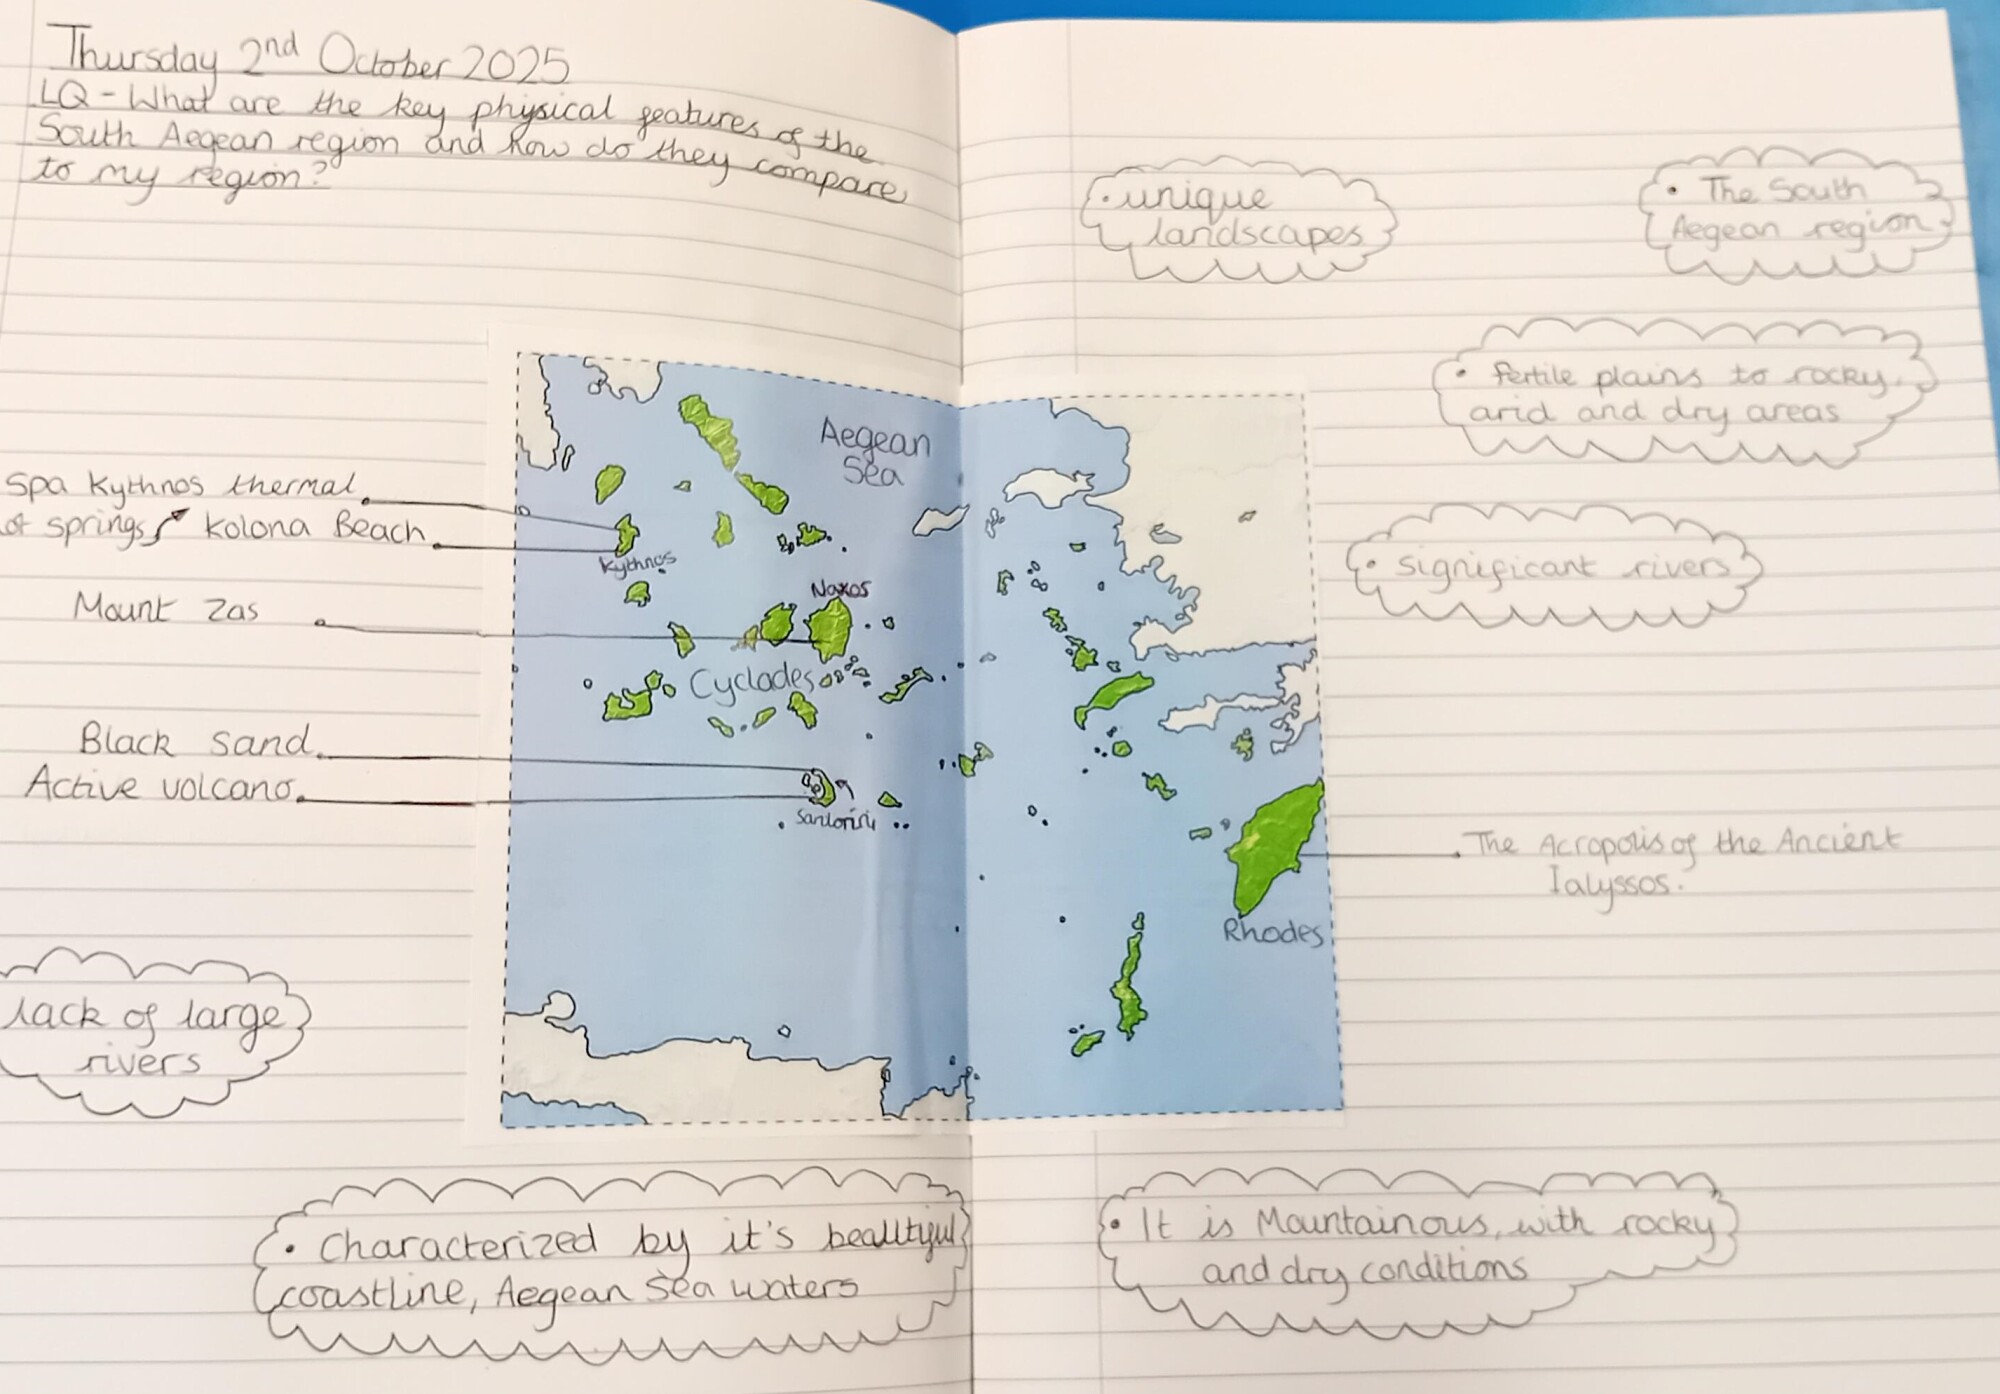 Thursday 2nd October 2025
LQ - What are the key physical features of the
South Aegean region and how do they compare
to my region?
• unique
landscapes
• The South
Aegean region
• fertile plains to rocky,
arid and dry areas
• significant rivers
Spa Kythnos thermal
of springs
Kolona Beach
Mount Zas
Black sand
Active volcano
Aegean
Sea
Kythnos
Naxos
Cyclades
Santorini
Rhodes
The Acropolis of the Ancient
Ialyssos.
lack of large
rivers
• Characterized by it's beautiful
coastline, Aegean Sea waters
• It is Mountainous, with rocky
and dry conditions